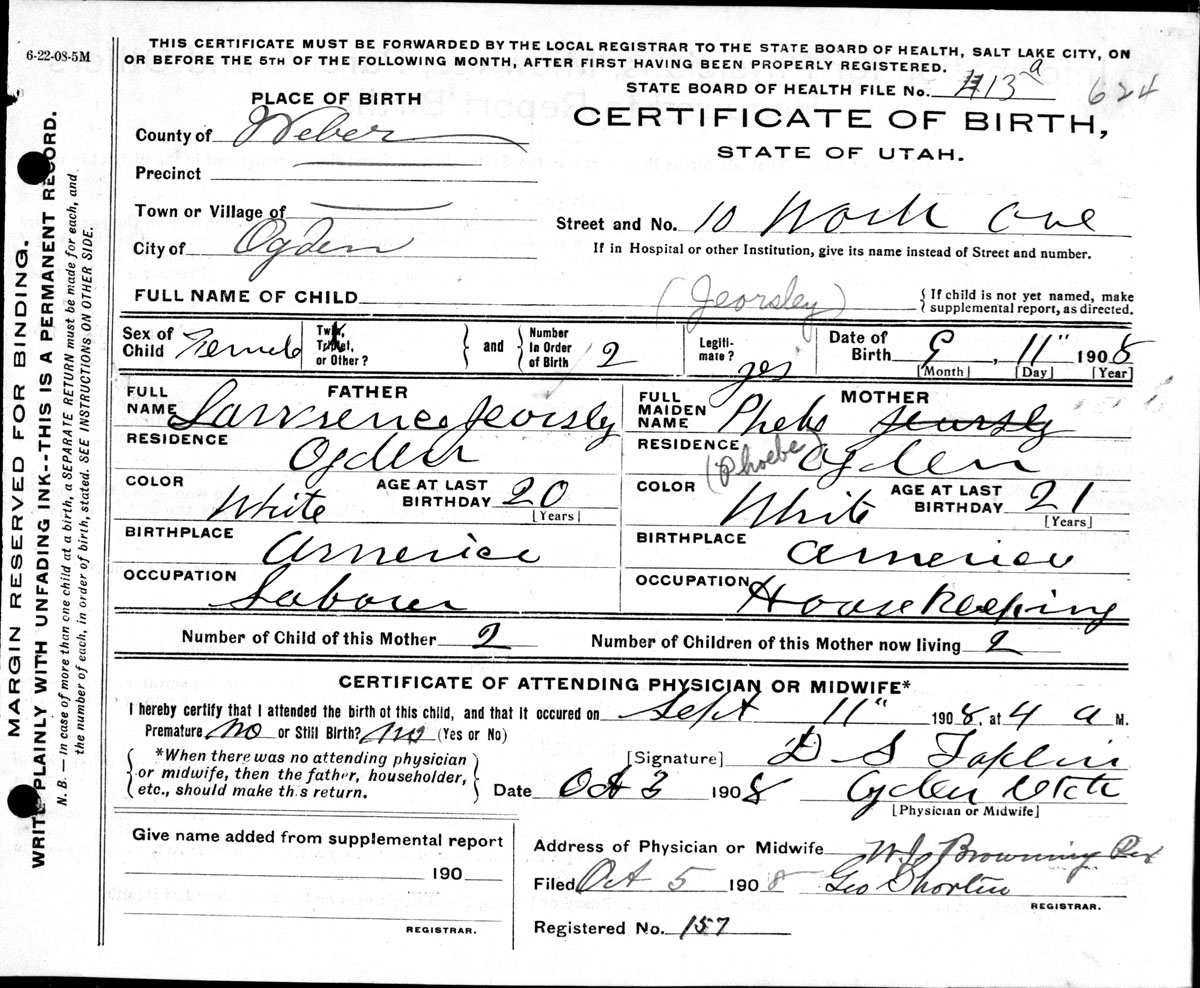 6-22-08-5M
THIS CERTIFICATE MUST BE FORWARDED BY THE LOCAL REGISTRAR TO THE STATE BOARD OF HEALTH, SALT LAKE CITY, ON
OR BEFORE THE 5TH OF THE FOLLOWING MONTH, AFTER FIRST HAVING BEEN PROPERLY REGISTERED.
STATE BOARD OF HEALTH FILE No. 413 a 624
PLACE OF BIRTH
CERTIFICATE OF BIRTH,
STATE OF UTAH.
County of Weber
Precinct
Town or Village of
Street and No. 10
City of Ogden
If in Hospital or other Institution, give its name instead of Street and number.
FULL NAME OF CHILD (Jeorsley) { If child is not yet named, make
supplemental report, as directed.
Sex of Child Female
Twin, Triplet, or Other? } and { Number In Order of Birth 2
Legitimate? yes
Date of Birth 9, 11" 1908
[Month] [Day] [Year]
FATHER
FULL NAME Lawrence Jeorsly
RESIDENCE Ogden
COLOR White AGE AT LAST BIRTHDAY 20
[Years]
BIRTHPLACE America
OCCUPATION Laborer
MOTHER
FULL MAIDEN NAME Pheby Jeorsly
(Phoebe)
RESIDENCE Ogden
COLOR White AGE AT LAST BIRTHDAY 21
[Years]
BIRTHPLACE America
OCCUPATION Housekeeping
Number of Child of this Mother 2 Number of Children of this Mother now living 2
CERTIFICATE OF ATTENDING PHYSICIAN OR MIDWIFE*
I hereby certify that I attended the birth of this child, and that it occured on Sept 11" 1908, at 4 a M.
Premature No or Still Birth? No (Yes or No)
{ *When there was no attending physician
or midwife, then the father, householder,
etc., should make this return. }
[Signature] D S Taplin
Date Oct 3 1908 Ogden Utah
[Physician or Midwife]
Give name added from supplemental report
190
REGISTRAR.
Address of Physician or Midwife W J Browning
Filed Oct 5 1908 Geo Shorten
REGISTRAR.
Registered No. 157
MARGIN RESERVED FOR BINDING.
WRITE PLAINLY WITH UNFADING INK--THIS IS A PERMANENT RECORD.
N. B. — in case of more than one child at a birth, a SEPARATE RETURN must be made for each, and
the number of each, in order of birth, stated. SEE INSTRUCTIONS ON OTHER SIDE.